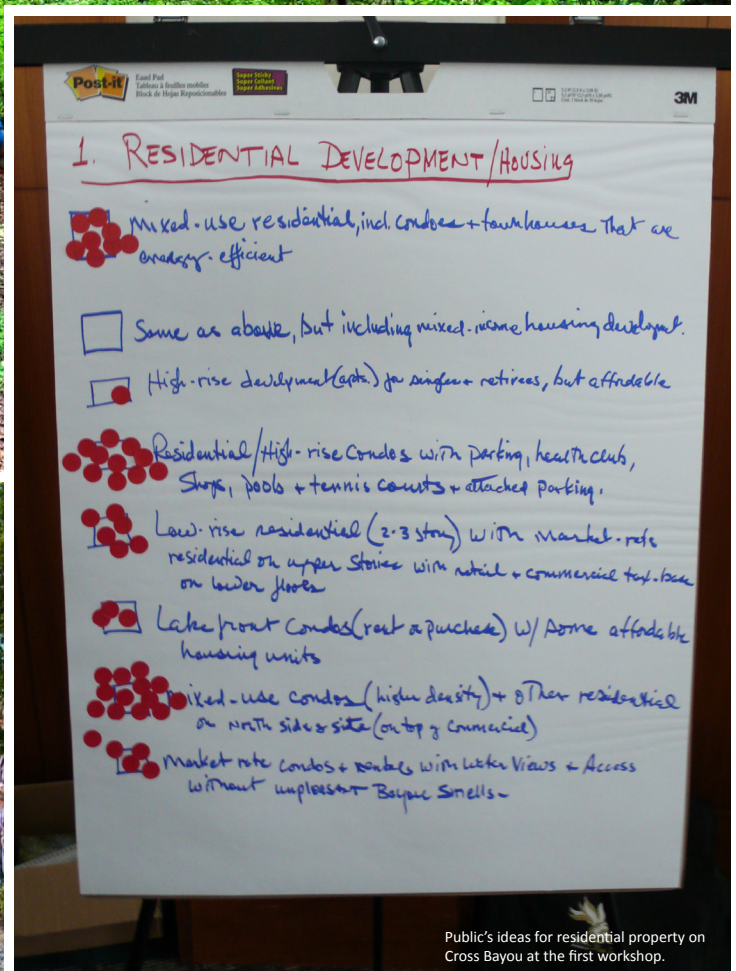 Post-it
Easel Pad
Tableau à feuilles mobiles
Block de Hojas Reposicionables
Super Sticky
Super Collant
Super Adhesivas
3M
1. RESIDENTIAL DEVELOPMENT/HOUSING
Mixed-use residential, incl. condoes + townhouses that are
energy-efficient
Same as above, but including mixed-income housing developmt.
High-rise develpment (apts.) for singles + retirees, but affordable
Residential/High-rise Condos with parking, health club,
Shops, pools + tennis courts + attached parking.
Low-rise residential (2-3 story) with market-rate
residential on upper stories with retail + commercial tax-base
on lower floors
Lakefront Condos (rent or purchase) w/ some affordable
housing units
ixed-use condos (high density) + other residential
on North side of site (on top of commercial)
Market rate condos + rentals with water views + Access
without unpleasant Bayou smells-
Public's ideas for residential property on
Cross Bayou at the first workshop.